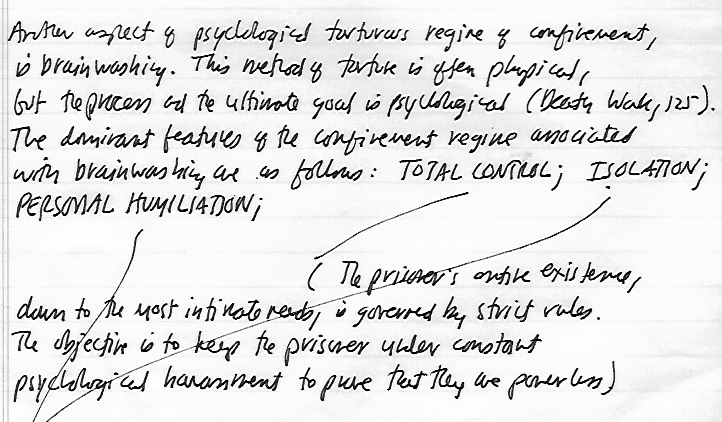 Another aspect of psychological torturous regime of confinement,
is brainwashing. This method of torture is often physical,
but the process and the ultimate goal is psychological (Death Walk, 125).
The dominant features of the confinement regime associated
with brainwashing are as follows: TOTAL CONTROL; ISOLATION;
PERSONAL HUMILIATION;
(The prisoner's entire existence,
down to the most intimate needs, is governed by strict rules.
The objective is to keep the prisoner under constant
psychological harassment to prove that they are powerless)